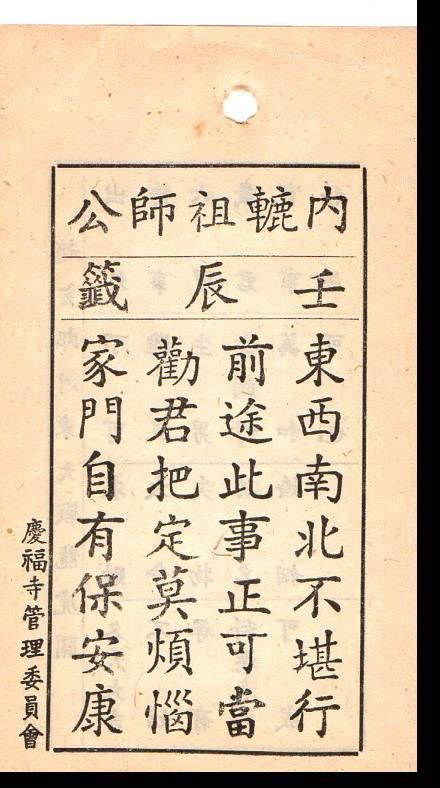 內轆祖師公
壬辰籤
東西南北不堪行
前途此事正可當
勸君把定莫煩惱
家門自有保安康
慶福寺管理委員會